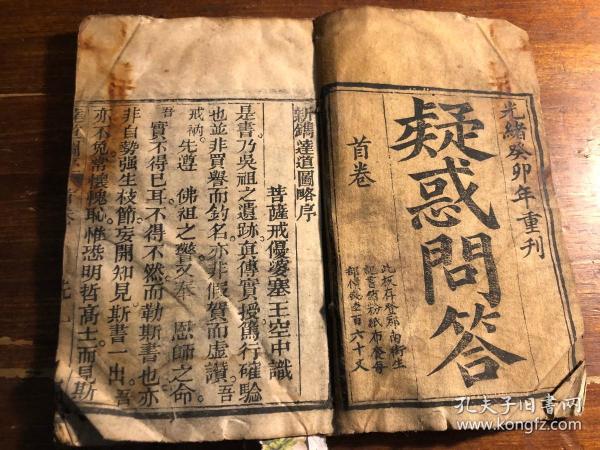 光緒癸卯年重刊
疑惑問答
首卷
此板存登郡南街生
記書鋪粉紙布套每
部價錢壹百六十文
新鐫達道圖略序
菩薩戒優婆塞王空中識
是書乃吳祖之遺跡真傳實授篤行確驗
也並非買譽而釣名亦非假贊而虛讚吾
戒衲先遵 佛祖之聲又奉 恩師之命
吾實不得已耳不得不然而勒斯書也亦
非自勢强生枝節妄開知見斯書一出吾
亦不免常懷愧恥惟恐明哲高士而見斯
孔夫子旧書网
www.kongfz.com